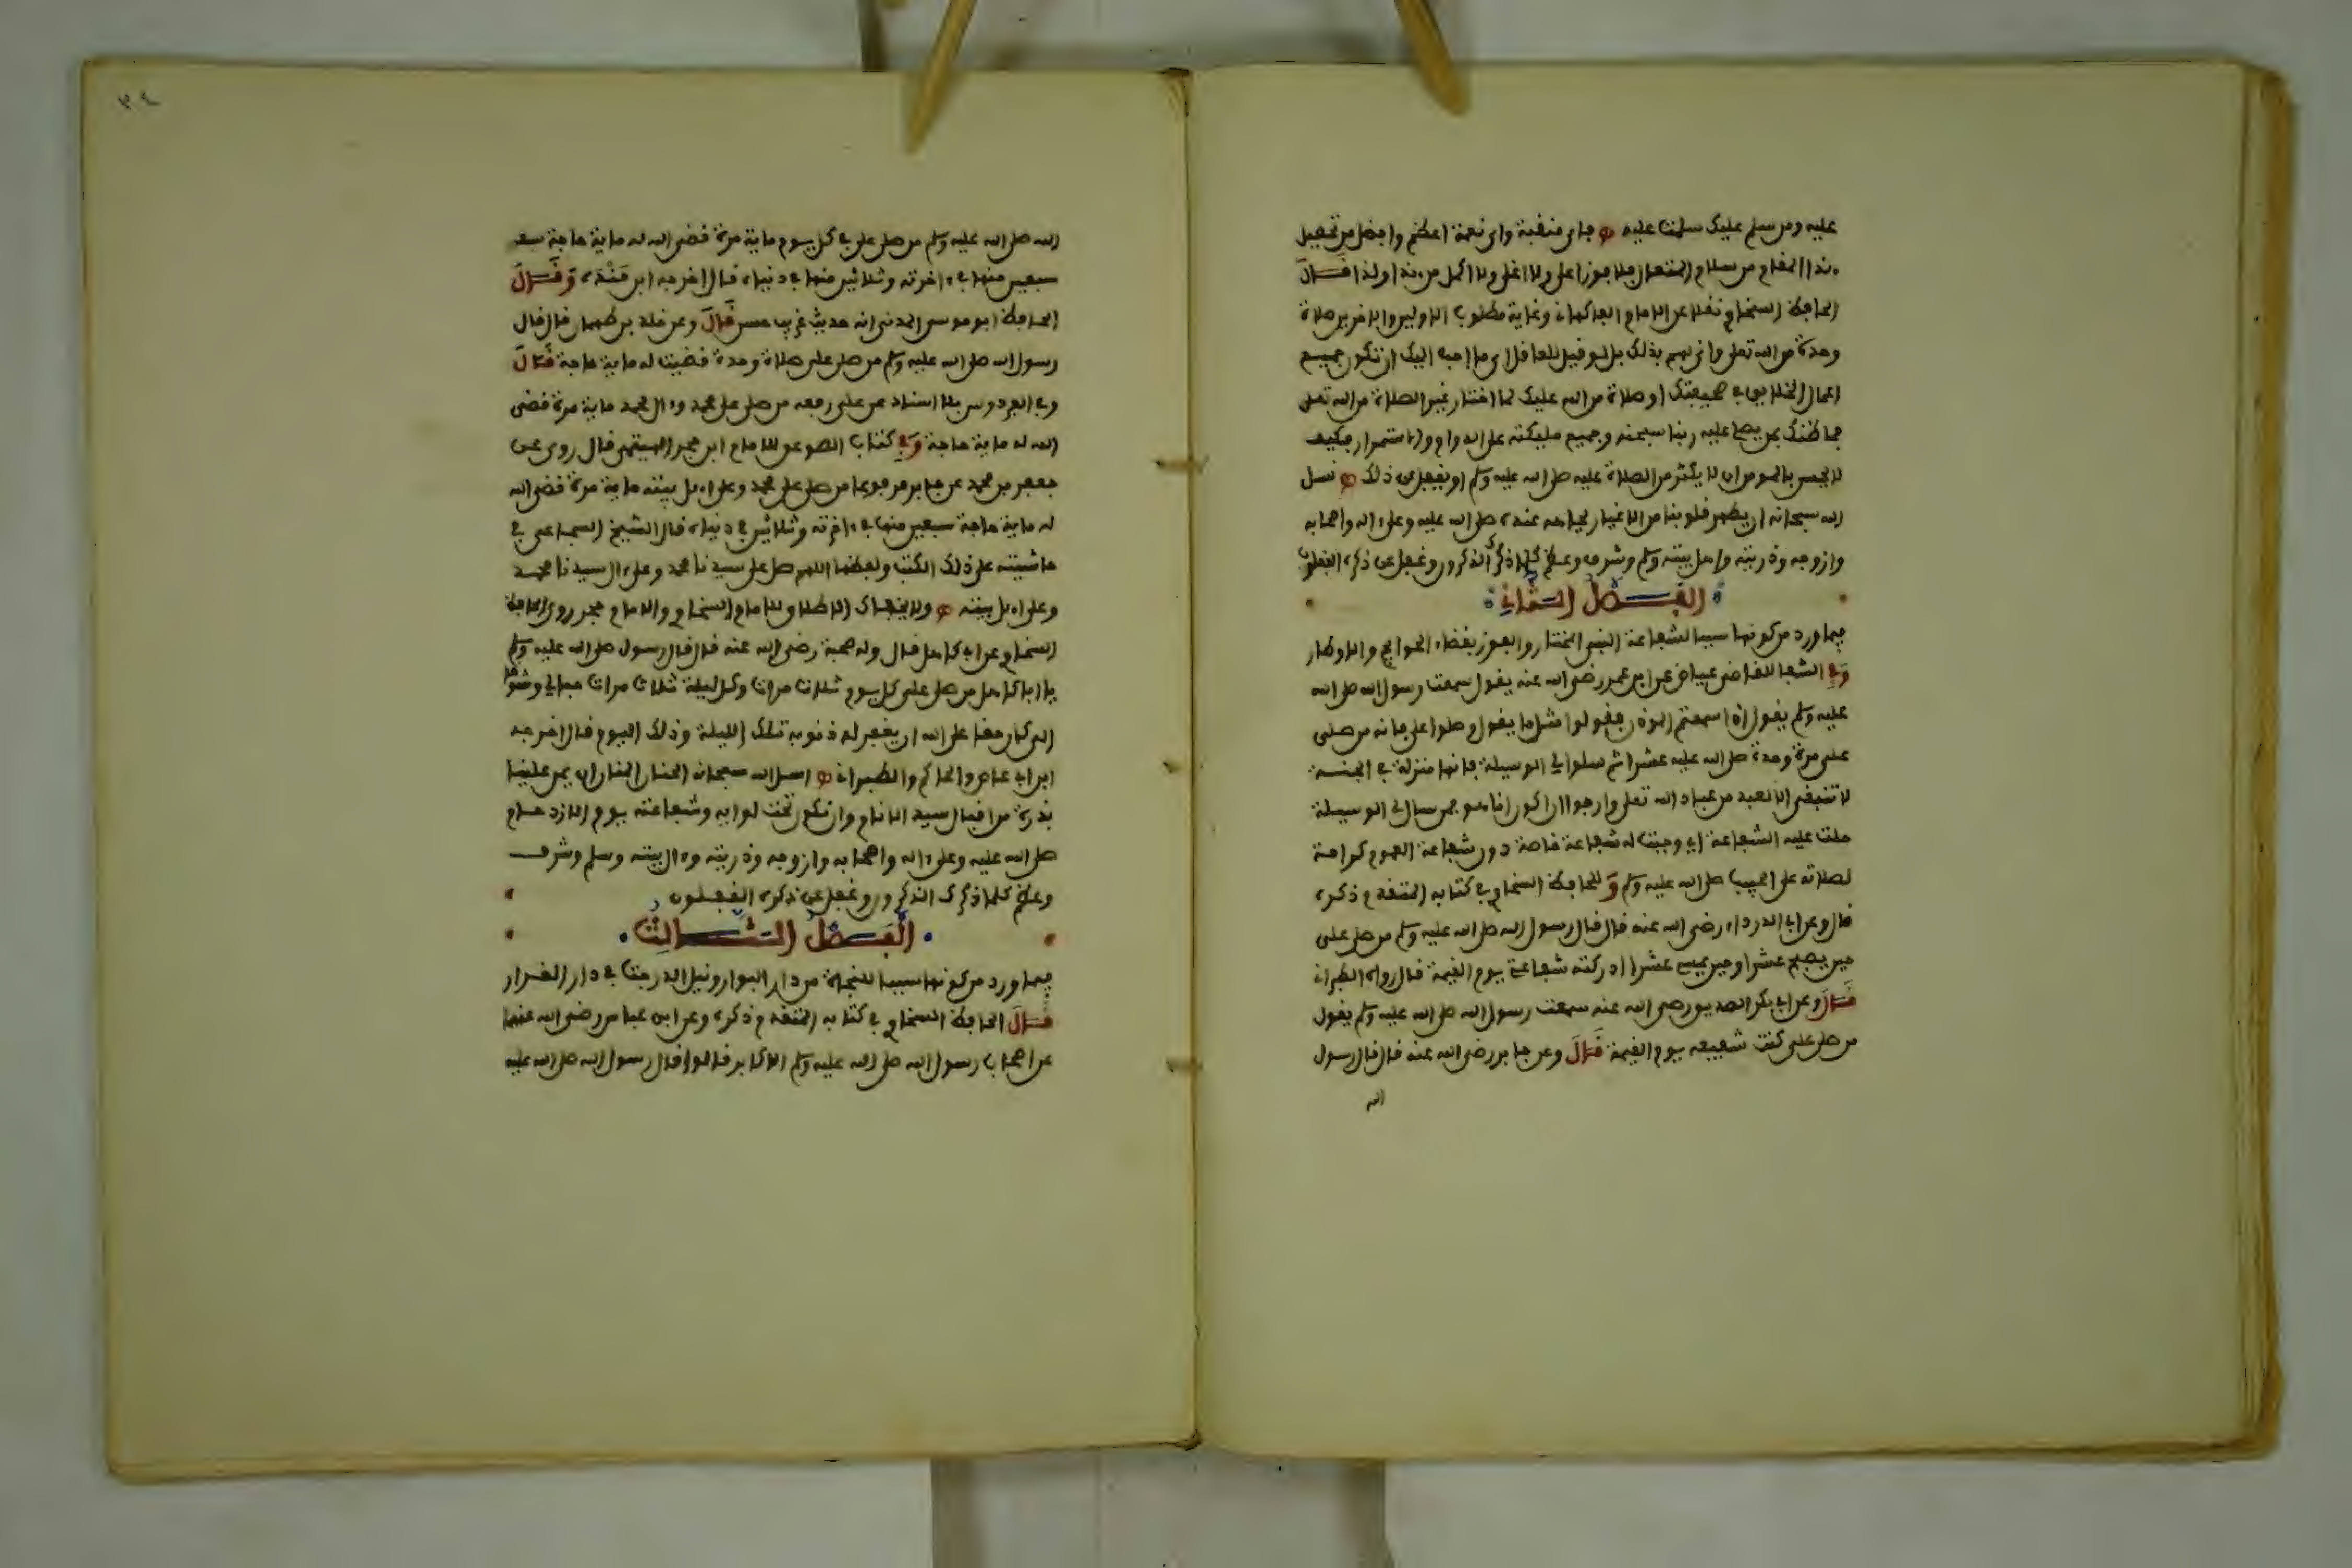 عليه ومن سلم عليك سلمت عليه فاي منقبة واي نعمة اعظم وافضل من تحصيل
هذا المقام من سلام المتعال فلا فوز اعلى ولا اغلى ولا اكمل من هذا ولذا قال
الحافظ السخاوي نقلا عن الامام الفاكهاني وغاية مطلوب الاولين والاخرين صلاة
وحدة من الله تعلى وانى لهم بذلك بل لو قيل للعاقل اي ما احب اليك ان تكون جميع
اعمال الخلايق في صحيفتك او صلاة من الله عليك لما اختار غير الصلاة من الله تعلى
فما ظنك بمن يصلي عليه ربنا سبحنه وجميع مليكته على الدوام والاستمرار فكيف
لا يحسن بالمومن ان لا يكثر من الصلاة عليه صلى الله عليه وسلم او يغفل عن ذلك نسل
الله سبحانه ان يطهر قلوبنا من الاغيار بجاهه عنده صلى الله عليه وعلى اله واصحابه
وازوجه وذريته واهل بيته وسلم وشرف وعظم كلما ذكرك الذكرون وغفل عن ذكره الغفلون
الفصل الثاني
فيما ورد من كونها سببا لشفاعة النبي المختار والفوز بقضاء الحوايج والاوطار
وفي الشفا للقاضي عياض عن ابن عمر رضي الله عنه يقول سمعت رسول الله صلى الله
عليه وسلم يقول اذا سمعتم الموذن فقولوا مثل ما يقول وصلوا علي فانه من صلى
علي مرة وحدة صلى الله عليه عشرا ثم سلوا لي الوسيلة فانها منزلة في الجنة
لا تنبغي الا لعبد من عباد الله تعلى وارجوا ان اكون انا هو فمن سال لي الوسيلة
حلت عليه الشفاعة اي وجبت له شفاعة خاصة دون شفاعة العموم كرامة
لصلاته على الحبيب صلى الله عليه وسلم وللحافظ السخاوي في كتابه المتقدم ذكره
قال وعن ابي الدرداء رضي الله عنه قال قال رسول الله صلى الله عليه وسلم من صلى علي
حين يصبح عشرا وحين يمسي عشرا ادركته شفاعتي يوم القيمة قال رواه الطبراني
قال وعن ابي بكر الصديق رضي الله عنه سمعت رسول الله صلى الله عليه وسلم يقول
من صلى علي كنت شفيعه يوم القيمة قال وعن جابر رضي الله عنه قال قال رسول
الله
٣٤
الله صلى الله عليه وسلم من صلى علي في كل يوم ماية مرة قضى الله له ماية حاجة
سبعين منها في ءاخرته وثلاثين منها في دنياه قال اخرجه ابن مندة وقال
الحافظ ابو موسى المدني انه حديث غريب حسن قال وعن خلد بن طهمان قال قال
رسول الله صلى الله عليه وسلم من صلى علي صلاة وحدة قضيت له ماية حاجة قال
وفي الفردوس بلا اسناد عن علي رفعه من صلى على محمد وءال محمد ماية مرة قضى
الله له ماية حاجة وفي كتاب الصوعق للامام ابن حجر الهيتمي قال روي عن
جعفر بن محمد عن جابر مرفوعا من صلى على محمد وعلى اهل بيته ماية مرة قضى الله
له ماية حاجة سبعين منها في ءاخرته وثلاثين في دنياه قال الشيخ السجاعي في
حاشيته على ذلك الكتب ولفظها اللهم صل على سيدنا محمد وعلى ءال سيدنا محمد
وعلى اهل بيته ولا يخفاك الاطلاق للامام السخاوي والامام حجر روى الحافظ
السخاوي عن ابي كاهل قال وله صحبة رضي الله عنه قال قال رسول صلى الله عليه وسلم
يا ابا كاهل من صلى علي كل يوم ثلاث مرات وكل ليلة ثلاث مرات حبا لي وشوقا
الي كان حقا على الله ان يغفر له ذنوبه تلك الليلة وذلك اليوم قال اخرجه
ابن ابي عاصم والحاكم والطبراني اسل الله سبحانه الحنان المنان ان يمن علينا
بذرة من افضال سيد الانام وان نكون تحت لوايه وشفاعته يوم الازدحام
صلى الله عليه وعلى ءاله واصحابه وازوجه وذريته وءال بيته وسلم وشرف
وعظم كلما ذكرك الذكرون وغفل عن ذكره الغفلون
الفصل الثالث
فيما ورد من كونها سببا للنجاة من دار البوار ونيل الدرجت في دار القرار
قال الحافظ السخاوي في كتابه المتقدم ذكره وعن ابن عباس رضي الله عنهما
عن اصحاب رسول الله صلى الله عليه وسلم الاكابر قالوا قال رسول الله صلى الله عليه